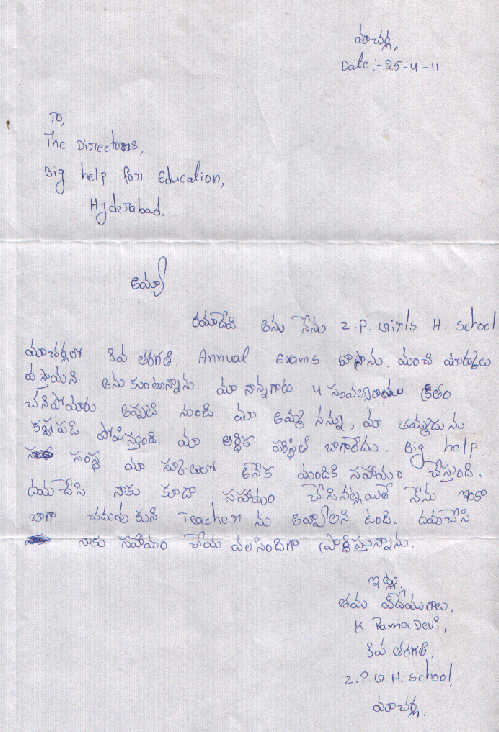 మాచర్ల,
Date :- 25-4-11
To,
The Directors,
Big help For Education,
Hyderabad.
అమ్మా
రమాదేవి అను నేను Z.P. Girls H. School
మాచర్లలో 8వ తరగతి Annual Exams వ్రాసాను. మంచి మార్కులు
వస్తాయని అనుకుంటున్నాను. మా నాన్నగారు 4 సంవత్సరాలు క్రితం
చనిపోయారు అప్పటి నుండి మా అమ్మే నన్ను, మా తమ్ముడును
కష్టపడి పోషిస్తుంది మా ఆర్థిక పరిస్థితి బాగాలేదు. Big help
సంస్థ మా స్కూలులో అనేక మందికి సహాయం చేస్తుంది.
దయచేసి నాకు కూడా సహాయం చేసినట్లయితే నేను ఇంకా
బాగా చదువుకుని Teacher ను కావ్వాలని ఉంది. దయచేసి
నాకు సహాయం చేయ వలసిందిగా ప్రార్థిస్తున్నాను.
ఇట్లు,
తమ విధేయురాలు,
K Rama Devi,
8వ తరగతి,
Z.P.G H. School
మాచర్ల.